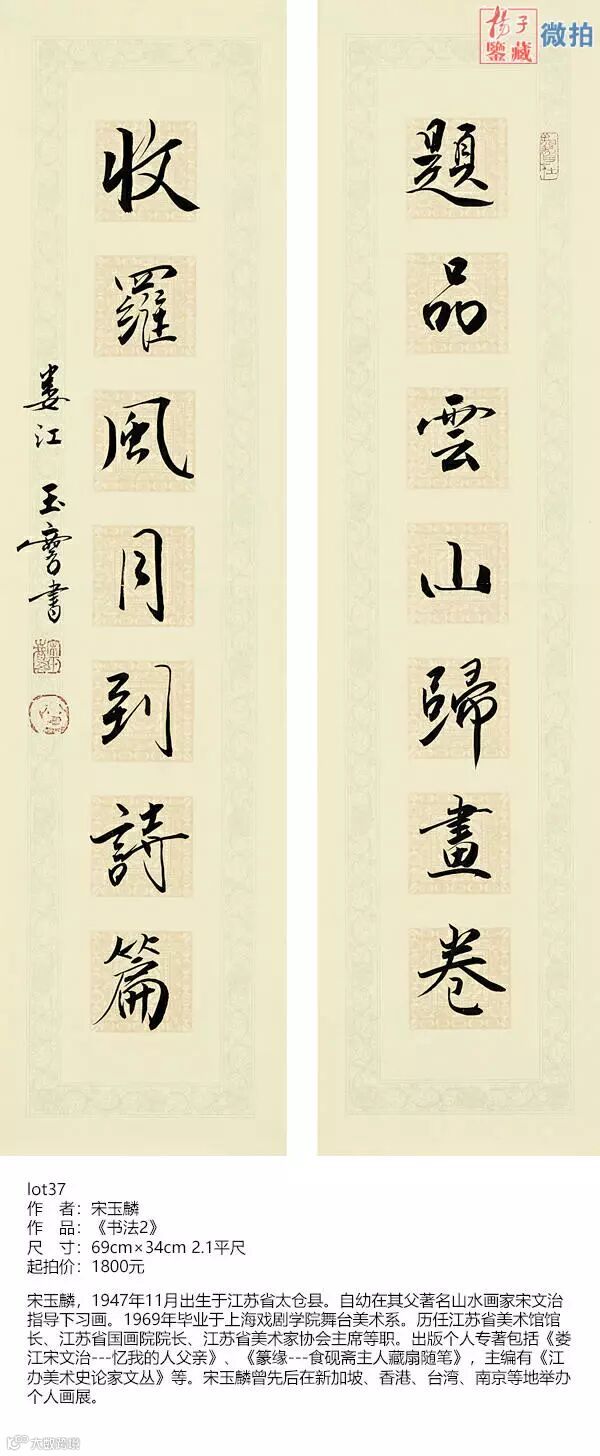 楊子
鑒藏
微拍
題品雲山歸畫卷
收羅風月到詩篇
婁江 玉麐書
lot37
作 者：宋玉麟
作 品：《书法2》
尺 寸：69cm×34cm 2.1平尺
起拍价：1800元
宋玉麟，1947年11月出生于江苏省太仓县。自幼在其父著名山水画家宋文治
指导下习画。1969年毕业于上海戏剧学院舞台美术系。历任江苏省美术馆馆
长、江苏省国画院院长、江苏省美术家协会主席等职。出版个人专著包括《娄
江宋文治---忆我的人父亲》、《篆缘---食砚斋主人藏扇随笔》，主编有《江
办美术史论家文丛》等。宋玉麟曾先后在新加坡、香港、台湾、南京等地举办
个人画展。
大数跨境